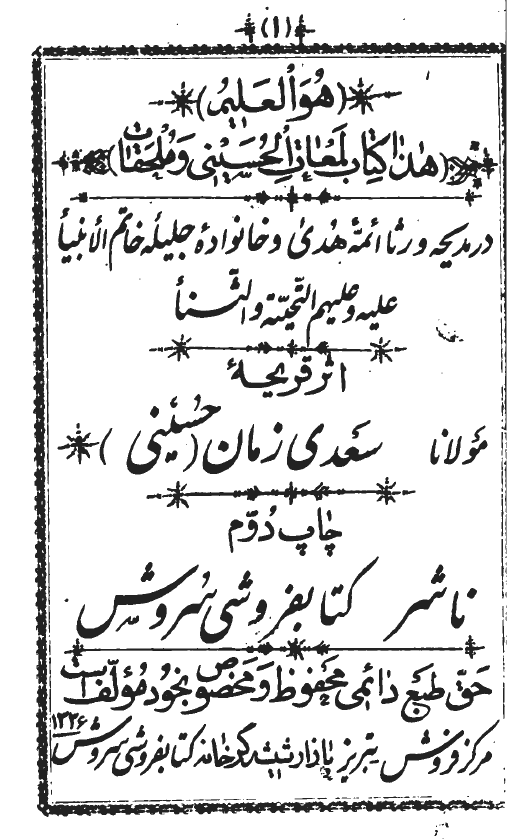 (١)
(هُوَ الْعَلیمُ)
(هٰذا کِتابُ لَمَعٰاتِ الْحُسَیْنی وَ مُلْحَقٰاتْ)
در مدیحه و رثا ائمّهٔ هُدیٰ و خانوادهٔ جلیلهٔ خاتم الانبیأ
علیه و علیهم التّحیّة و الثّنأ
اثر قریحهٔ
مؤلانا سعدی زمان (حُسینی)
چاپ دُوّم
ناشر کتابفروشی سُروش
حَقّ طبع دائمی مَحفوظ وَ مَخصُوص بخُود مُؤلّف است
مرکز فروش تبریز بازار شیشه گرخانه کتابفروشی سروش ١٣٢۶